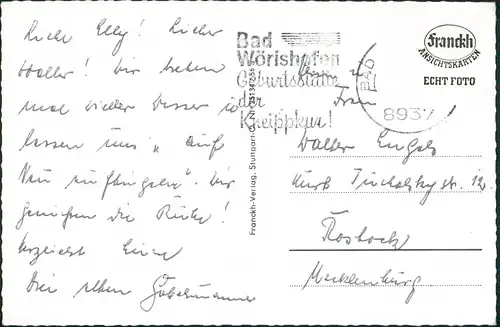 Liebe Elly! Lieber
Walter! Wir haben
mal wieder Wasser
lassen uns "auf
Neu aufbügeln". Wir
genießen die Ruhe!
herzlichst Eure
drei alten
Bad
Wörishofen
Geburtsstätte
der
Kneippkur!
BAD
8939
Franckh
ANSICHTSKARTEN
ECHT FOTO
Franckh-Verlag, Stuttgart-O
u.
Frau
Walter Engels
Kurt Tucholsky str. 12
Rostock
Mecklenburg